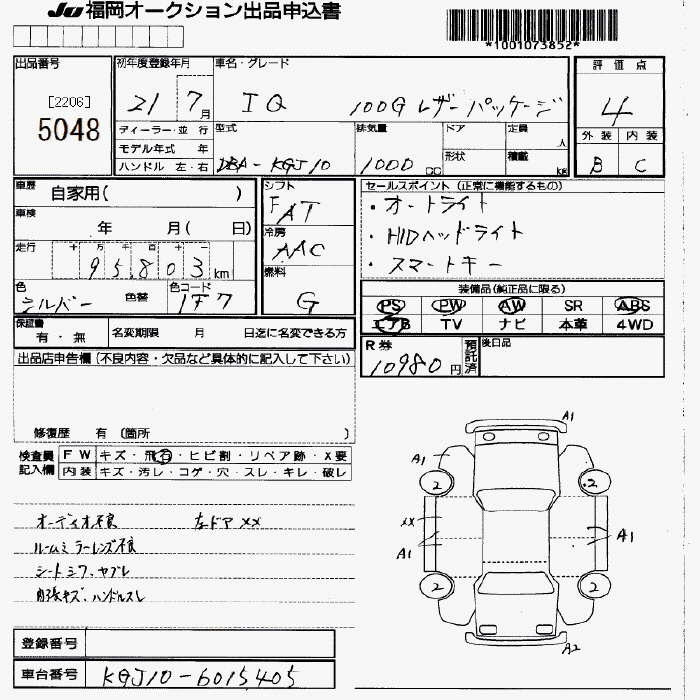 JU 福岡オークション出品申込書
*1001073852*
出品番号
[2206]
5048
初年度登録年月
21 7月
車名・グレード
IQ 100G レザーパッケージ
評価点
4
外装 内装
B C
ディーラー・並行
モデル年式 年
ハンドル 左・右
型式
DBA-KGJ10
排気量
1000 cc
ドア
形状
定員 人
積載 kg
車歴
自家用( )
車検
年 月( 日)
走行 十 万 千 百 十 一
95,803 km
色
シルバー
色替
色コード
1F7
シフト
FAT
冷房
AAC
燃料
G
セールスポイント (正常に機能するもの)
・オートライト
・HIDヘッドライト
・スマートキー
装備品(純正品に限る)
PS PW AW SR ABS
エアB TV ナビ 本革 4WD
保証書
有・無
名変期限 月 日迄に名変できる方
R券
10980円
預託済
後日品
出品店申告欄(不良内容・欠品など具体的に記入して下さい)
修復歴 有 (箇所 )
検査員記入欄
FW キズ・飛石・ヒビ割・リペア跡・X要
内装 キズ・汚レ・コゲ・穴・スレ・キレ・破レ
オーディオ不良 左ドアXX
ルームミラーレンズ不良
シートシワ、ヤブレ
内張キズ、ハンドルスレ
A1
A1
2 2
XX
A1 A1
2 2
A2
登録番号
車台番号 KGJ10-6015405